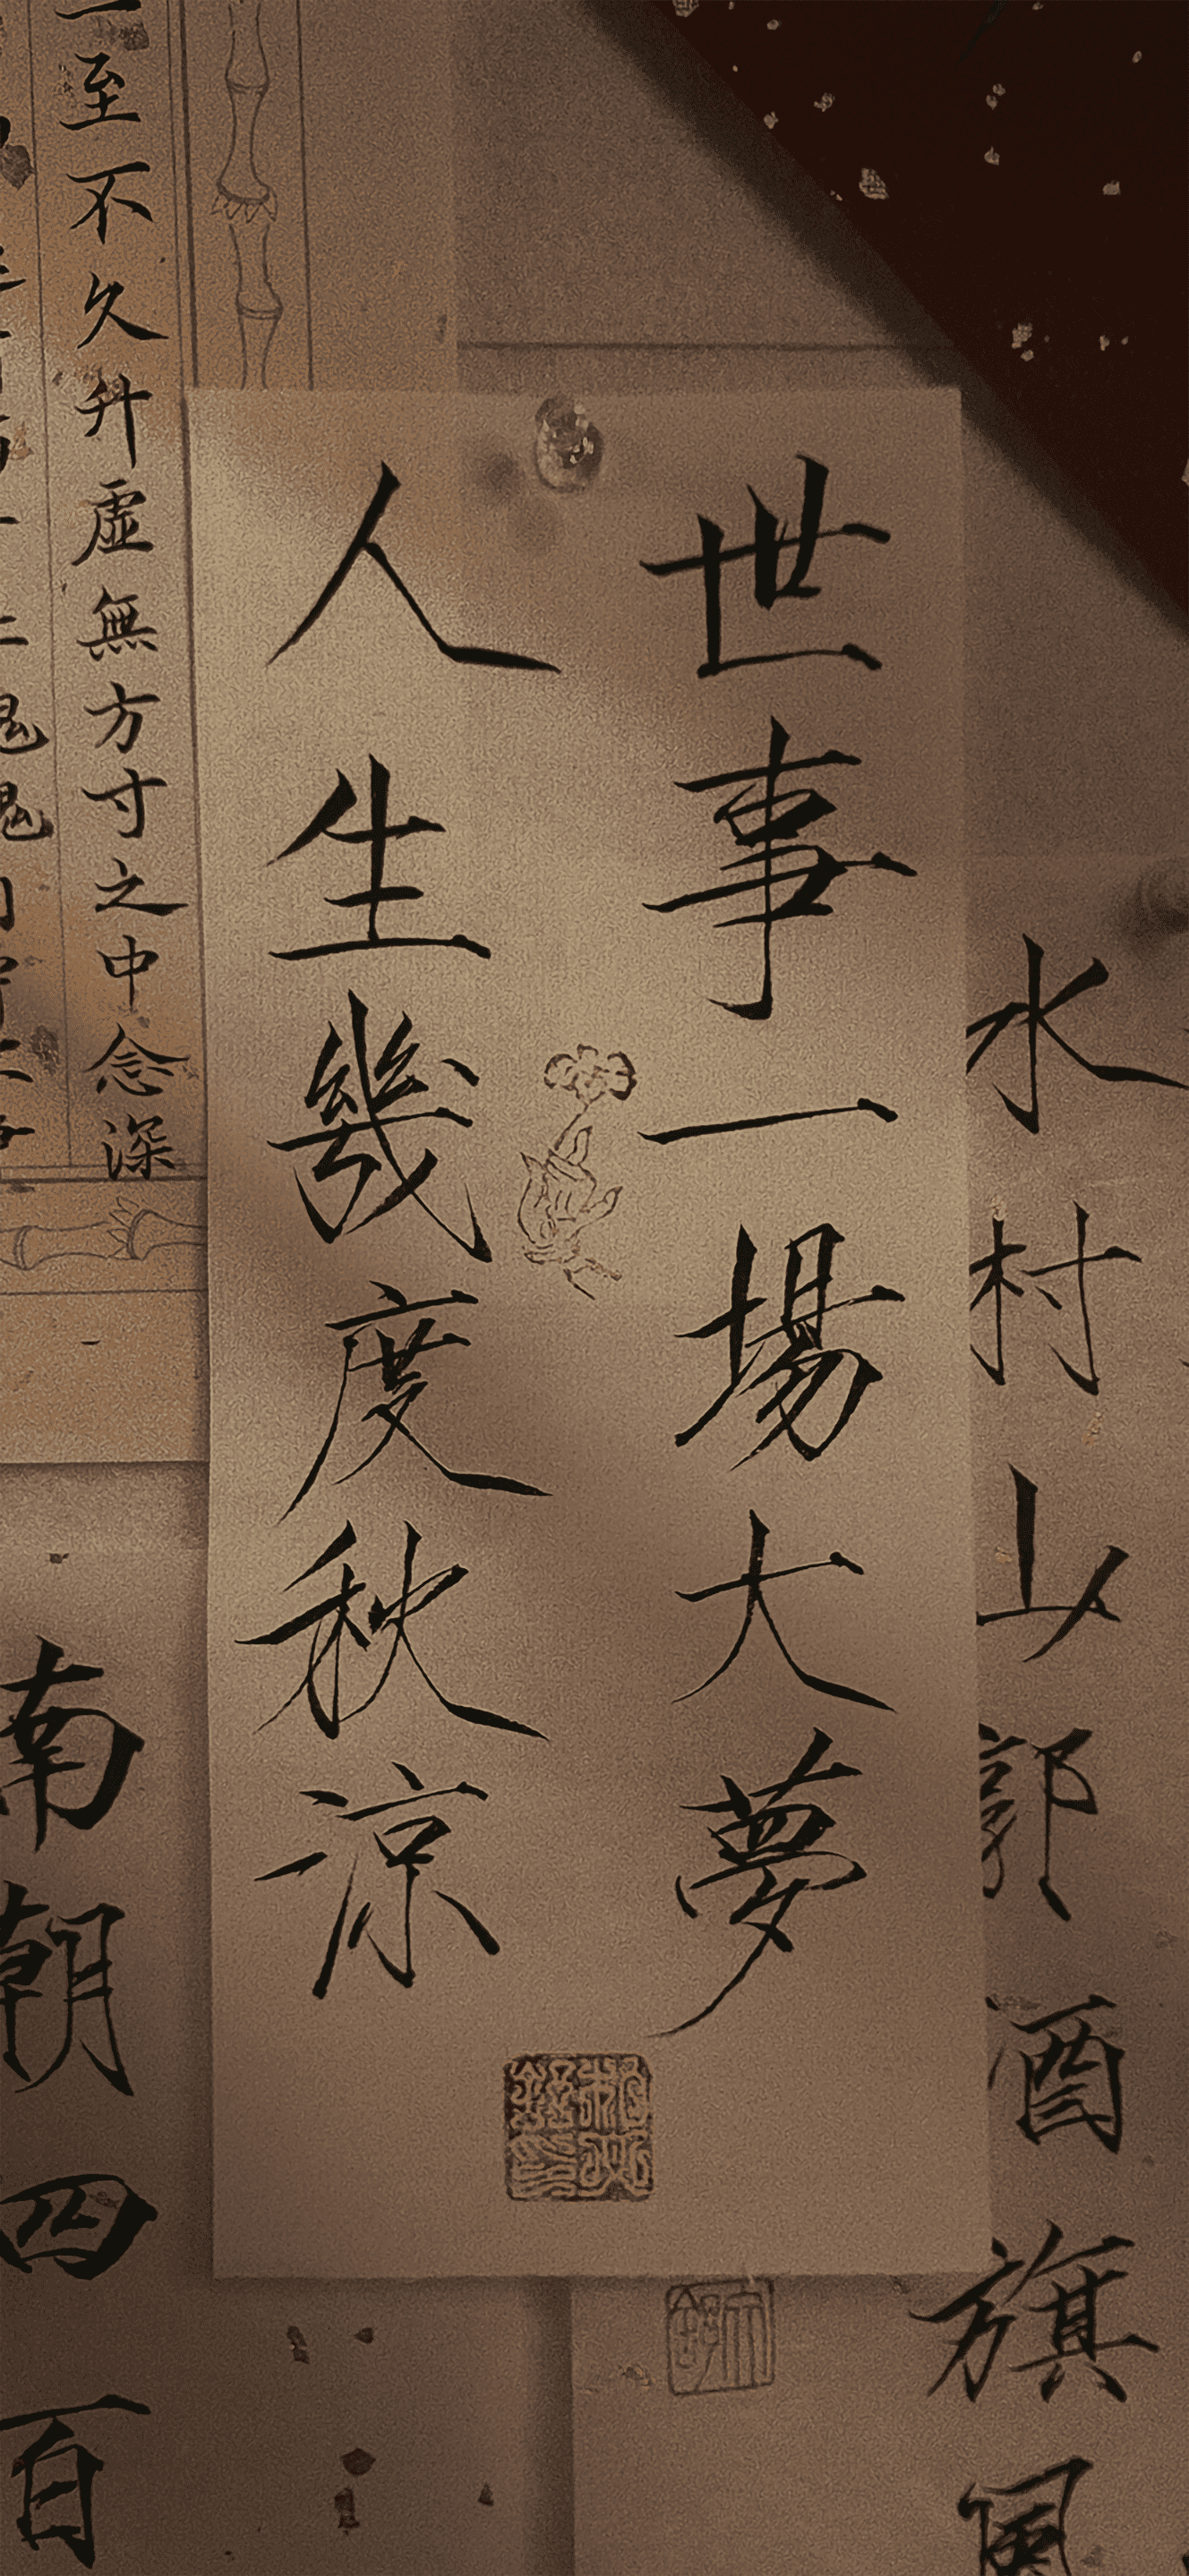 世事一場大夢
人生幾度秋涼
水村山郭酒旗風
南朝四百
至不久升虛無方寸之中念深